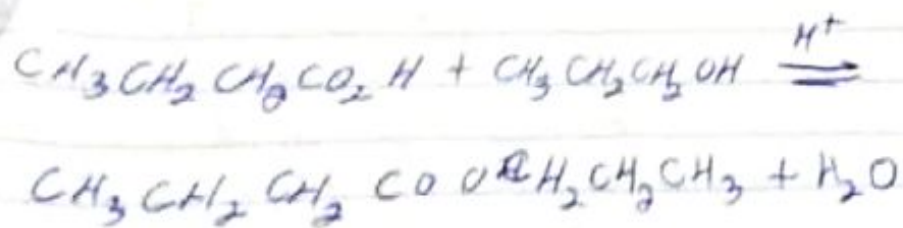 CH₃CH₂CH₂CO₂H + CH₃CH₂CH₂OH ⇌ H⁺
CH₃CH₂CH₂COOCH₂CH₂CH₃ + H₂O